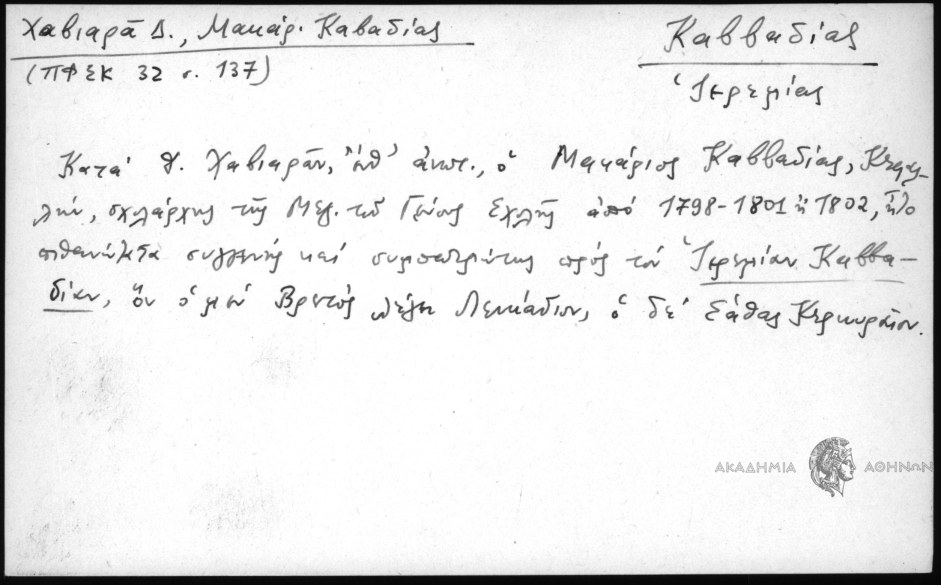 Χαβιαρᾶ Δ., Μακάρ. Καβαδίας
(ΠΦΣΚ 32 σ. 137)
Καββαδίας
Ἱερεμίας
Κατὰ Δ. Χαβιαρᾶν, ἔνθ' ἀνωτ., ὁ Μακάριος Καββαδίας, Κεφαλ-
λήν, σχολάρχης τῆς Μεγ. τοῦ Γένους Σχολῆς ἀπὸ 1798-1801 ἢ 1802, ἦτο
πιθανώτατα συγγενὴς καὶ συμπατριώτης πρὸς τὸν Ἱερεμίαν Καββα-
δίαν, ὃν ὁ μὲν Βρετὸς λέγει Λευκάδιον, ὁ δὲ Σάθας Κερκυραῖον.
ΑΚΑΔΗΜΙΑ ΑΘΗΝΩΝ